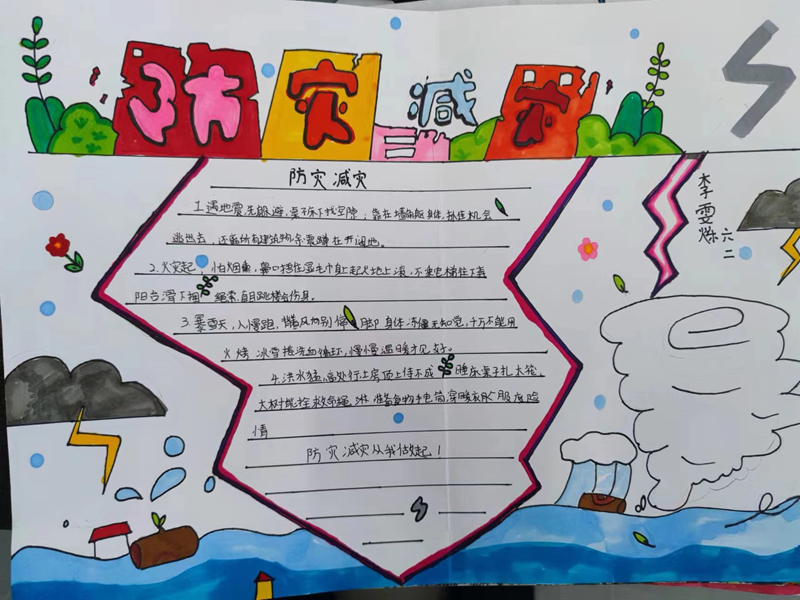 防灾减灾
防灾减灾
1.遇地震,先躲避,桌子床下找空隙,靠在墙角屈身体,抓住机会
逃出去,还需所有建筑物,余震蹲在开阔地。
2.火灾起,怕烟熏,鼻口捂住湿毛巾身上起火地上滚,不乘电梯往下
阳台滑下捆绳索,盲目跳楼会伤身。
3.暴雪天,人慢跑,背着风向别停脚身体冻僵无知觉,千万不能用
火烤 冰雪搓洗血循环,慢慢温暖才见好。
4.洪水猛,高处行土房顶上待不成 睡床桌子扎大筏,
大树能拴救命绳,准备食物手电筒,穿暖衣服 度险
情
防灾减灾从我做起!
李雯烁
六二